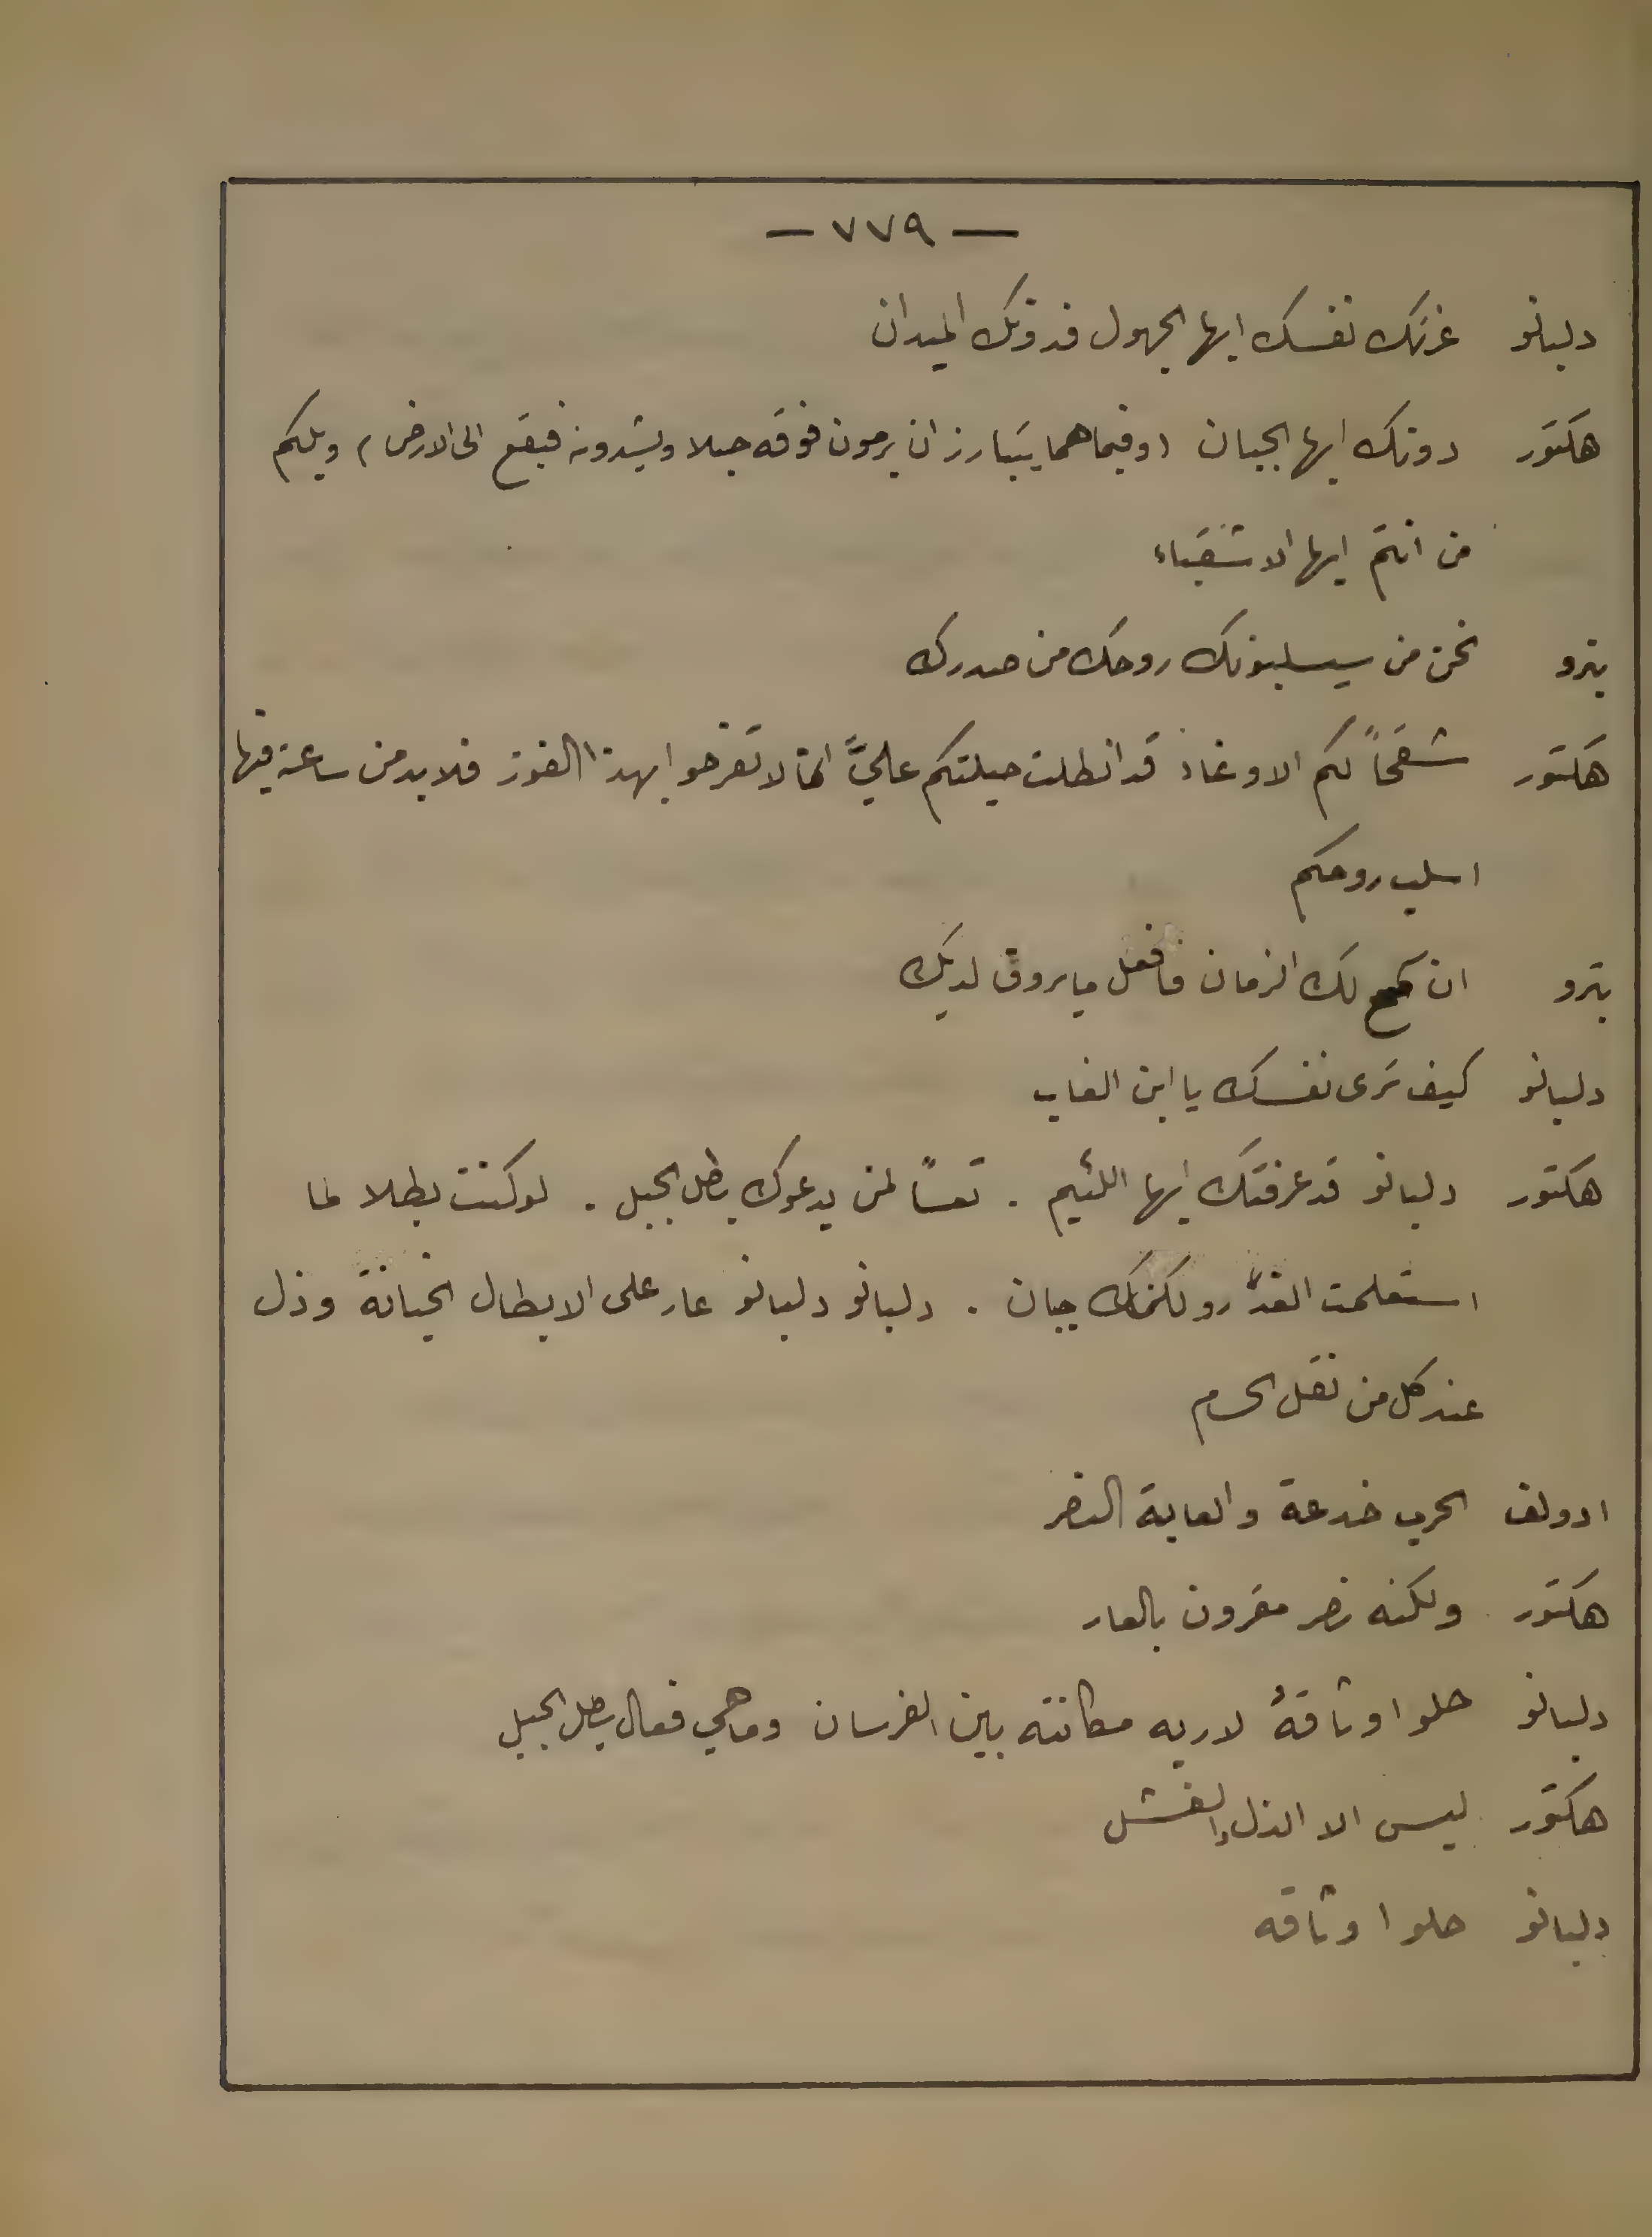 — ٧٧٩ —
دلبانو غرتك نفسك ايها الجهول فدونك الميدان
هكتور دونك ايها الجبان (وفيما هما يتبارزان يرمون فوقه حبلا ويشدونه فيقع الى الارض) ويلكم
من انتم ايها الاشقياء
بترو نحن من سيسلبونك روحك من صدرك
هكتور شقحاً لكم الاوغاد قد انطلت حيلتكم عليَّ انما لا تفرحوا بهذا الفوز فلا بد من ساعة فيها
اسلب روحكم
بترو ان سمح لك الزمان فافعل ما يروق لديك
دلبانو كيف ترى نفسك يا ابن الغاب
هكتور دلبانو قد عرفتك ايها اللئيم . تعساً لمن يدعوك بطل الجبل . لو كنت بطلا لما
استعملت الغدر ولكنك جبان . دلبانو دلبانو عار على الابطال الخيانة وذل
عند كل من نقل الحسام
ادولف الحرب خدعة والغاية النصر
هكتور ولكنه نصر مقرون بالعار
دلبانو حلوا وثاقهُ لاريه مكانته بين الفرسان وما هي فعال بطل الجبل
هكتور ليس الا الذل والفشل
دلبانو حلوا وثاقه